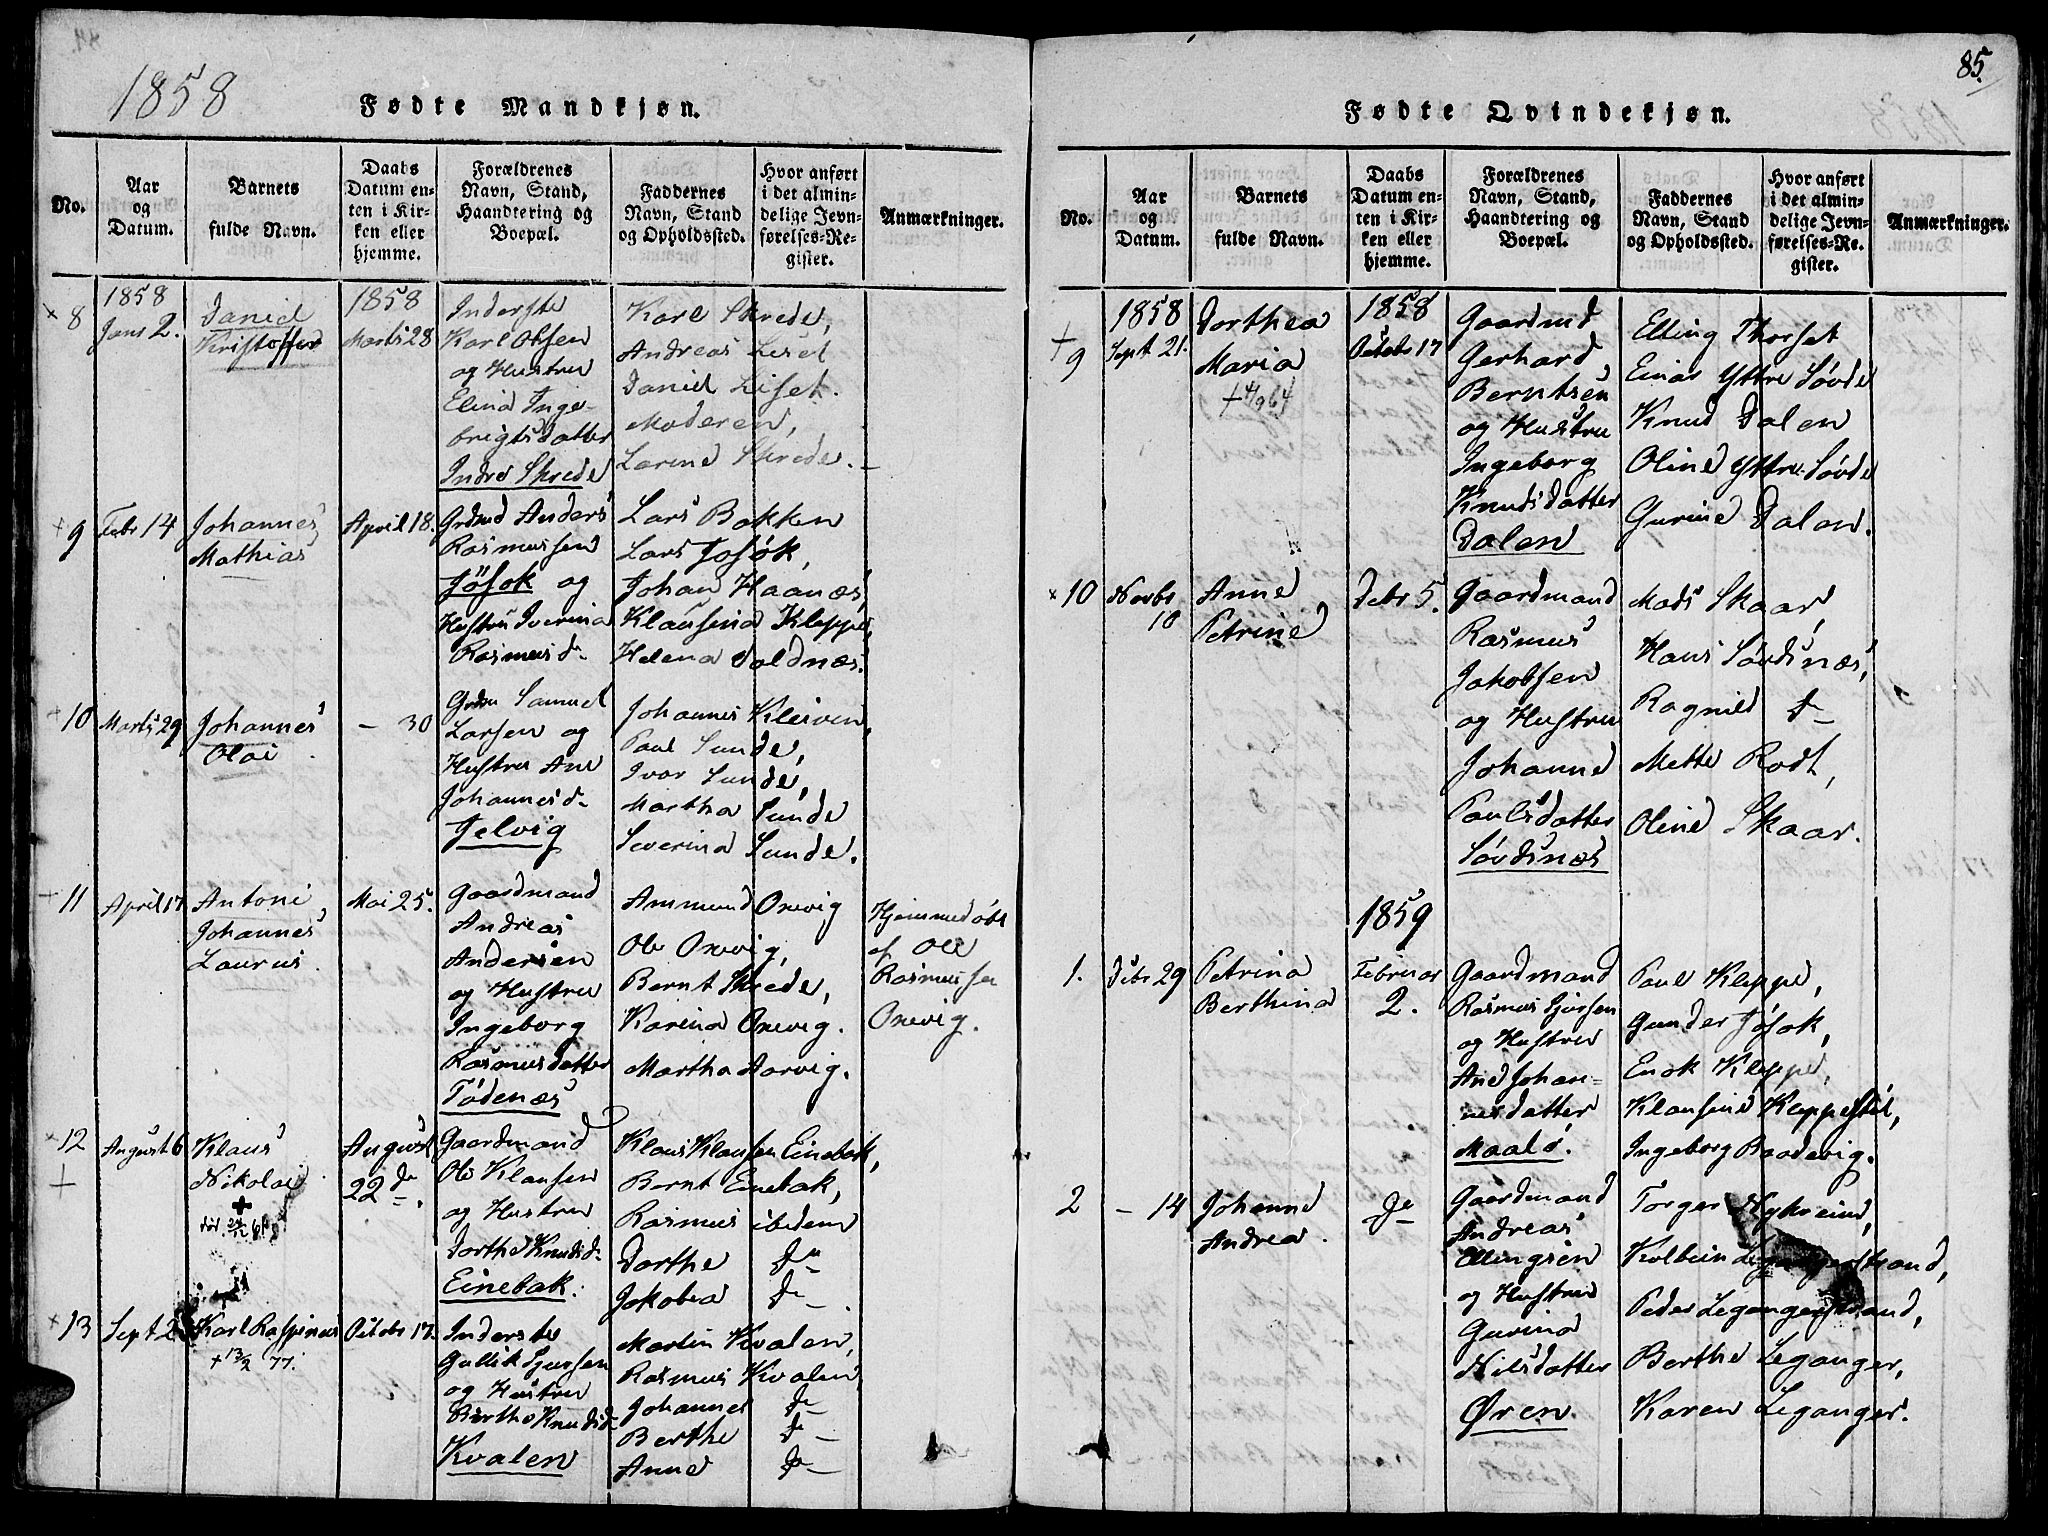 1858
Fødte Mandkjøn.
No.
Aar
og
Datum.
Barnets
fulde Navn.
Daabs
Datum en-
ten i Kir-
ken eller
hjemme.
Forældrenes
Navn, Stand,
Haandtering og
Boepæl.
Faddernes
Navn, Stand
og Opholdssted.
Hvor anført
i det almin-
delige Jevn-
førelses-Re-
gister.
Anmærkninger.
× 8
1858
Janr 2.
Daniel
Kristoffer
1858
Marts 28
Inderste
Karl Olsen
og Hustru
Elina Inge-
brigtsdatter
Indre Skrede
Karl Skrede,
Andreas Liset
Daniel Liset.
Moderen,
Larine Skrede.
+ 9
Febr 14
Johannes
Mathias
April 18.
Grdmd Anders
Rasmussen
Jösok og
Hustru Iverina
Rasmusd.
Lars Bakken
Lars Josøk,
Johan Haanæs,
Klausina Kleppe,
Helena Saldnæs.
+ 10
Marts 29
Johannes
Olai
- 30
Grdm Samuel
Larsen og
Hustru Ane
Johannesd.
Telvig
Johannes Kleiven,
Paul Sunde,
Ivar Sunde,
Martha Sunde
Severina Sunde.
+ 11
April 17
Antoni
Johannes
Laurus.
Mai 25.
Gaardmand
Andreas
Andersen
og Hustru
Ingeborg
Rasmusdatter
Tödenæs
Ammund Orevig
Ole Orevig,
Bernt Skrede,
Karina Orevig.
Martha Aarvig.
Hjemmedöbt
af Ole
Rasmussen
Orevig.
× 12
+
August 6
Klaus
Nikolai
August
22de.
Gaardmand
Ole Klausen
og Hustru
Dorthe Knudsd.
Einebak.
Klaus Klausen Einebak,
Bernt Einebak,
Rasmus ibidem
Dorthe do
Jakobea do
× 13
Sept 2
Karl Raspinus
+ 13/2 77.
Octobr 17.
Inderste
Gullik Sjursen
og Hustru
Berthe Knudsd.
Kvalen
Martin Kvalen,
Rasmus Kvalen,
Johannes do
Berthe do
Anne do
85.
Fødte Qvindekjøn.
No.
Aar
og
Datum.
Barnets
fulde Navn.
Daabs
Datum en-
ten i Kir-
ken eller
hjemme.
Forældrenes
Navn, Stand,
Haandtering og
Boepæl.
Faddernes
Navn, Stand
og Opholdssted.
Hvor anført
i det almin-
delige Jevn-
førelses-Re-
gister.
Anmærkninger.
+ 9
1858
Sept 21.
Dorthea
Maria
+ 4/9 64
1858
Octobr 17
Gaardmd
Gerhard
Berntsen
og Hustru
Ingeborg
Knudsdatter
Dalen
Elling Thorset
Einar Yttre Sövde
Knud Dalen
Oline Yttre Sövde
Gurine Dalen.
× 10
Novbr
18
Anne
Petrine
Debr 5.
Gaardmand
Rasmus
Jakobsen
og Hustru
Johanne
Paulsdatter
Sövdsnæs
Mads Skaar,
Hans Sövdsnæs,
Ragnild do
Mette Rødt,
Oline Skaar.
1859
1.
Debr 29
Petrina
Berthina
Februar
2.
Gaardmand
Rasmus Sjursen
og Hustru
Ane Johan-
nesdatter
Maalö.
Paul Kleppe,
Gunder Jösok,
Enok Kleppe,
Klausine Kleppestöl,
Ingeborg Baadevig.
2
- 14
Johanne
Andrea.
do
Gaardmand
Andreas
Ellingsen
og Hustru
Gurina
Nilsdatter
Øren.
Torger Nykreim,
Kolbein Legangerstrand,
Peder Legangerstrand,
Berthe Leganger,
Karen Leganger.